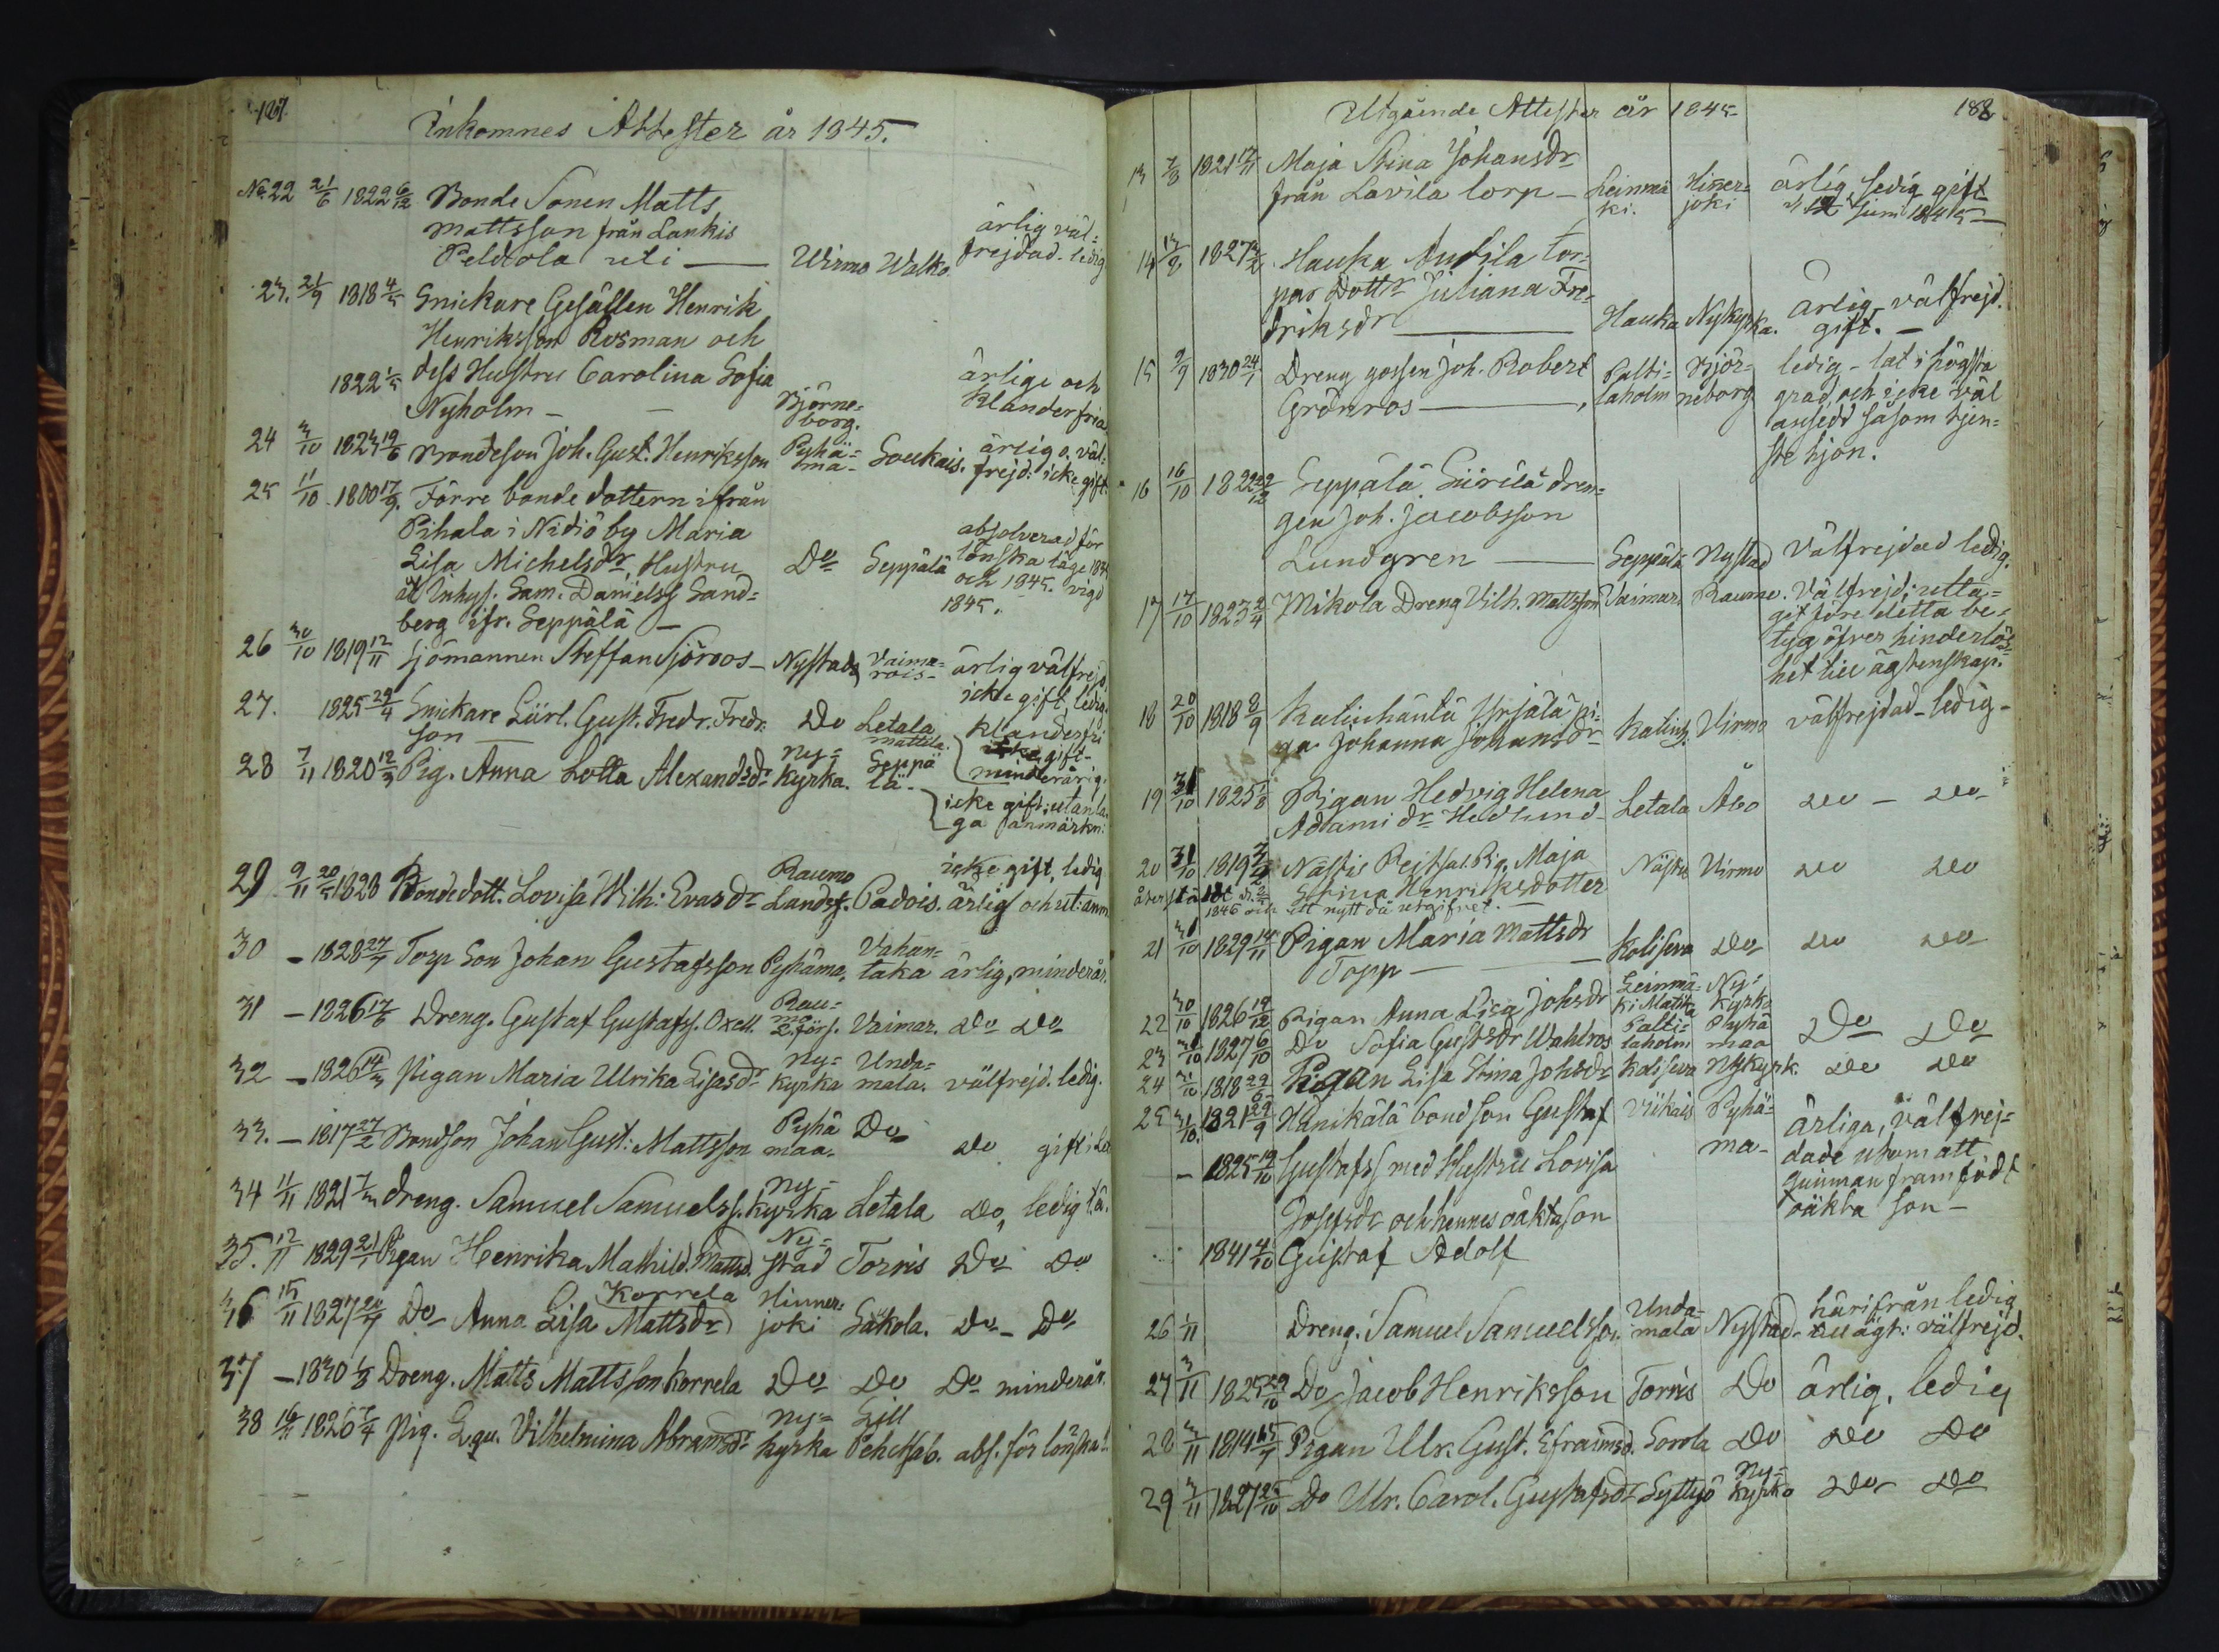 187.
Inkomnes Attester år 1845.
No. 22 21/6 1822 6/12 Bonde Sonen Matts
Mattsson från Lankis
Peldola uti — Wirmo Walko ärlig väl=
frejdad. ledig
23. 21/9 1818 4/5 Snickare Gesällen Henrik
Henriksson Rosman och
1822 1/5 dess Hustru Carolina Sofia
Nyholm — — Björne=
borg. ärlige och
klanderfria
24 3/10 1824 19/6 Bondeson Joh. Gust. Henriksson Pyhä=
ma- Soukais. ärlig o. väl=
frejd: icke gift.
25 1/10 1800 17/9. Förre bonde dottern ifrån
Pihala i Nidiö by Maria
Lisa Michelsdr, Hustru
åt Inhys. Sam. Danielss Sand=
berg ifr. Seppälä — Do Seppälä absolverad för
lönska läge
och 1845. vigd
1845.
26 30/10 1819 12/11 Sjömannen Steffan Sjöroos — Nystad Vaima=
rois- ärlig välfrejd
icke gift, ledig.
27. 1825 29/4 Snickare Lärl. Gust. Fredr. Fredr.
son — Do Letala
Mattila. klanderfri
icke gift-
minderårig.
28 7/11 1820 12/3 Pig. Anna Lotta Alexandsdr Ny=
kyrka. Seppä
lä. icke gift; utan la=
ga anmärkn:
29 9/11 20/5 1828 Bondedott. Lovisa Wilh: Evasdr Raumo
Landsf. Padois. icke gift, ledig
ärlig och ut: anm
30 — 1828 27/7 Torp Son Johan Gustafsson Pyhäma. Vahan=
taka ärlig, minderår.
31 — 1826 17/6 Dreng. Gustaf Gustafss. Oxell. Rau=
mo
Lförs. Vaimar. Do Do
32 — 1826 14/3 Pigan Maria Ulrika Lisasdr Ny=
kyrka Unda=
mala. välfrejd. ledig.
33. — 1817 27/2 Bondson Johan Gust: Mattsson Pyhä
maa. Do Do gift:
34 11/11 1821 7/3 Dreng. Samuel Samuelss. Ny=
kyrka Letala Do, ledig
35. 12/11 1829 21/1 Pigan Henrika Mathild. Mattsd. Ny=
stad Torris Do Do
36 15/11 1827 20/7 Do Anna Lisa Korrela
Mattsdr Hinner=
joki Säkola. Do Do
37 — 1830 1/8 Dreng. Matts Mattsson Korrela Do Do Do minderår.
38 16/11 1826 7/4 Pig. Eva. Vilhelmina Abramsdr Ny=
kyrka Lill
Pehcksab. abs. för lönska l.
Utgående Attester år 1845 188
13 7/8 1821 17/11 Maja Stina Johansdr
från Lavila torp — Leinmä
ki. Hiner=
joki ärlig, ledig gift
d. 12 Juni 1845 —
14 13/8 1827 3/2 Hauka Anttila tor=
pas Dottr Juliana Fre=
driksdr — Hauka Nykyrka. Ärlig välfrejd.
gift. —
15 9/9 1830 24/1 Dreng gossen Joh. Robert
Grönroos —, Palti=
laholm Björ=
neborg ledig — lat i högsta
grad, och icke väl
ansedd såsom tjen=
ste hjon.
16 16/10 1822 22/12 Seppälä Siirilä dren=
gen Joh. Jacobsson
Lundgren — Seppälä Nystad Välfrejdad ledig.
17 17/10 1823 2/4 Mikola Dreng Vilh. Mattsson Vaimar. Raumo. Välfrejd; utta=
git före detta be=
tyg öfver hinderlös=
het till ägtenskap.
18 20/10 1818 8/9 Kalinhäntä Yrjälä pi=
ga Johanna Johansdr Kalinh. Virmo välfrejdad — ledig —
19 31/10 1825 1/8 Pigan Hedvig Helena
Adamidr Hedlund — Letala Åbo Do — Do
20 31/10 1819 3/2 Nästis Peitsal. Pig. Maja
Stina Henriksdotter Nästis Virmo Do Do
återstäldt d. 2/2
1846 och ett nytt då utgifvet. —
21 31/10 1829 14/11 Pigan Maria Mattsdr
Topp — Koliseva Do Do Do
22 30/10 1826 19/12 Pigan Anna Lisa Johsdr Leinmä=
ki Matika Ny=
kyrka
23 31/10 1827 6/10 Do Sofia Gustsdr Wahlros Palti=
laholm Pyhä
maa Do Do
24 31/10 1818 29/6 Pigan Lisa Stina Johsdr Koliseva Nykyrk. Do Do
25 31/10. 1821 29/9 Hänikälä bondson Gustaf Viikais Pyhä=
ma- ärliga, välfrej=
dade utom att
quinnan framfödt
oäkta son —
— 1825 19/10 Gustafss med Hustru Lovisa
Josefsdr och hennes oäkta son
1841 4/10 Gustaf Adolf
26 1/11 Dreng. Samuel Samuelsson Unda=
mala Nystad. härifrån ledig
till ägt: välfrejd.
27 3/11 1825 29/10 Do Jacob Henriksson Torris Do ärlig, ledig
28 3/11 1814 15/7 Pigan Ulr. Gust. Efraimsd. Sorola Do Do Do
29 3/11 1827 25/10 Do Ulr. Carol. Gustafsdr Syttyö Ny=
kyrka Do Do